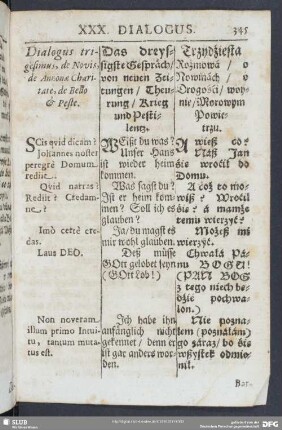 XXX. DIALOGUS.
345
Dialogus tri-
gesimus, de Novis,
de Annonæ Chari-
tate, de Bello
& Peste.
SCis qvid dicam?
Johannes noster
peregrè Domum
rediit.
Qvid narras?
Rediit? Credam-
ne?
Imò certè cre-
das.
Laus DEO.
Non noveram
illum primo Intui-
tu, tantum muta-
tus est.
Das dreys-
sigste Gespräch/
von neuen Zei-
tungen/ Theu-
rung/ Krieg
und Pesti-
lentz.
WEißt du was?
Unser Hans
ist wieder heim
kommen.
Was sagst du?
Ist er heim kom-
men? Soll ich es
glauben?
Ja/ du magst es
mir wohl glauben.
Deß müsse
GOtt gelobet seyn
(GOtt Lob!)
Ich habe ihn
anfänglich nicht
gekennet/ denn er
ist gar anders wor-
den.
Trzydziesta
Rozmowa/ o
Nowinách/ o
Drogośći/ woy-
nie/ Morowym
Powie-
trzu.
A wieß co?
Náß Jan
śię wroćił do
Domu.
A coż to mo-
wiß? Wroćił
śię? á mamże
temu wierzyć?
Możeß mi
wierzyć.
Chwałá Pá-
nu BOGU!
(PAN BOG
z tego niech bę-
dźie pochwa-
lon.)
Nie pozna-
łem (poznáłám)
go záraz/ bo śię
wßystek odmie-
nił.
Bar-
SLUB